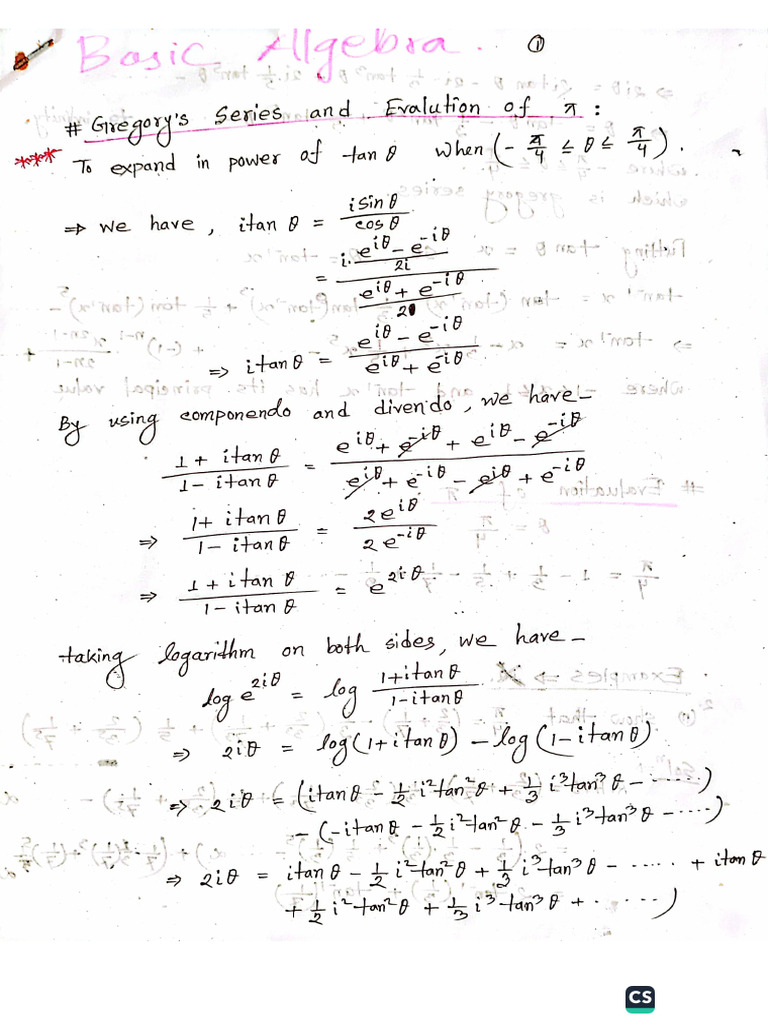 Basic Algebra. ①
# Gregory's Series and Evalution of π :
*** To expand in power of tan θ when (- π/4 ≤ θ ≤ π/4).
⇒ we have, itan θ = i sin θ / cos θ
= i. (e^{iθ} - e^{-iθ})/2i / (e^{iθ} + e^{-iθ})/2
⇒ itan θ = (e^{iθ} - e^{-iθ}) / (e^{iθ} + e^{-iθ})
By using componendo and divendo, we have-
(1 + itan θ)/(1 - itan θ) = (e^{iθ} + e^{-iθ} + e^{iθ} - e^{-iθ}) / (e^{iθ} + e^{-iθ} - e^{iθ} + e^{-iθ})
⇒ (1 + itan θ)/(1 - itan θ) = 2e^{iθ} / 2e^{-iθ}
⇒ (1 + itan θ)/(1 - itan θ) = e^{2iθ}
taking logarithm on both sides, we have -
log e^{2iθ} = log (1+itan θ)/(1-itan θ)
⇒ 2iθ = log(1+itan θ) - log(1-itan θ)
⇒ 2iθ = (itan θ - 1/2 i² tan² θ + 1/3 i³ tan³ θ - .....)
- (-itan θ - 1/2 i² tan² θ - 1/3 i³ tan³ θ - .....)
⇒ 2iθ = itan θ - 1/2 i² tan² θ + 1/3 i³ tan³ θ - ..... + itan θ
+ 1/2 i² tan² θ + 1/3 i³ tan³ θ + ......)
CS